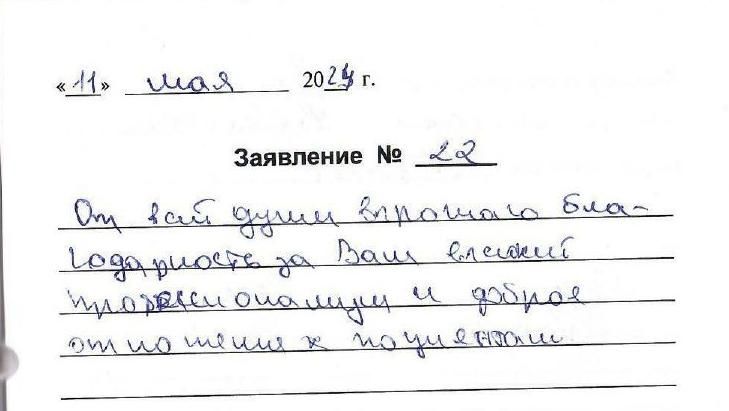 «11» мая 2024 г.
Заявление № 22
От всей души выражаю бла-
годарность за Ваш высокий
профессионализм и доброе
отношения к пациентам